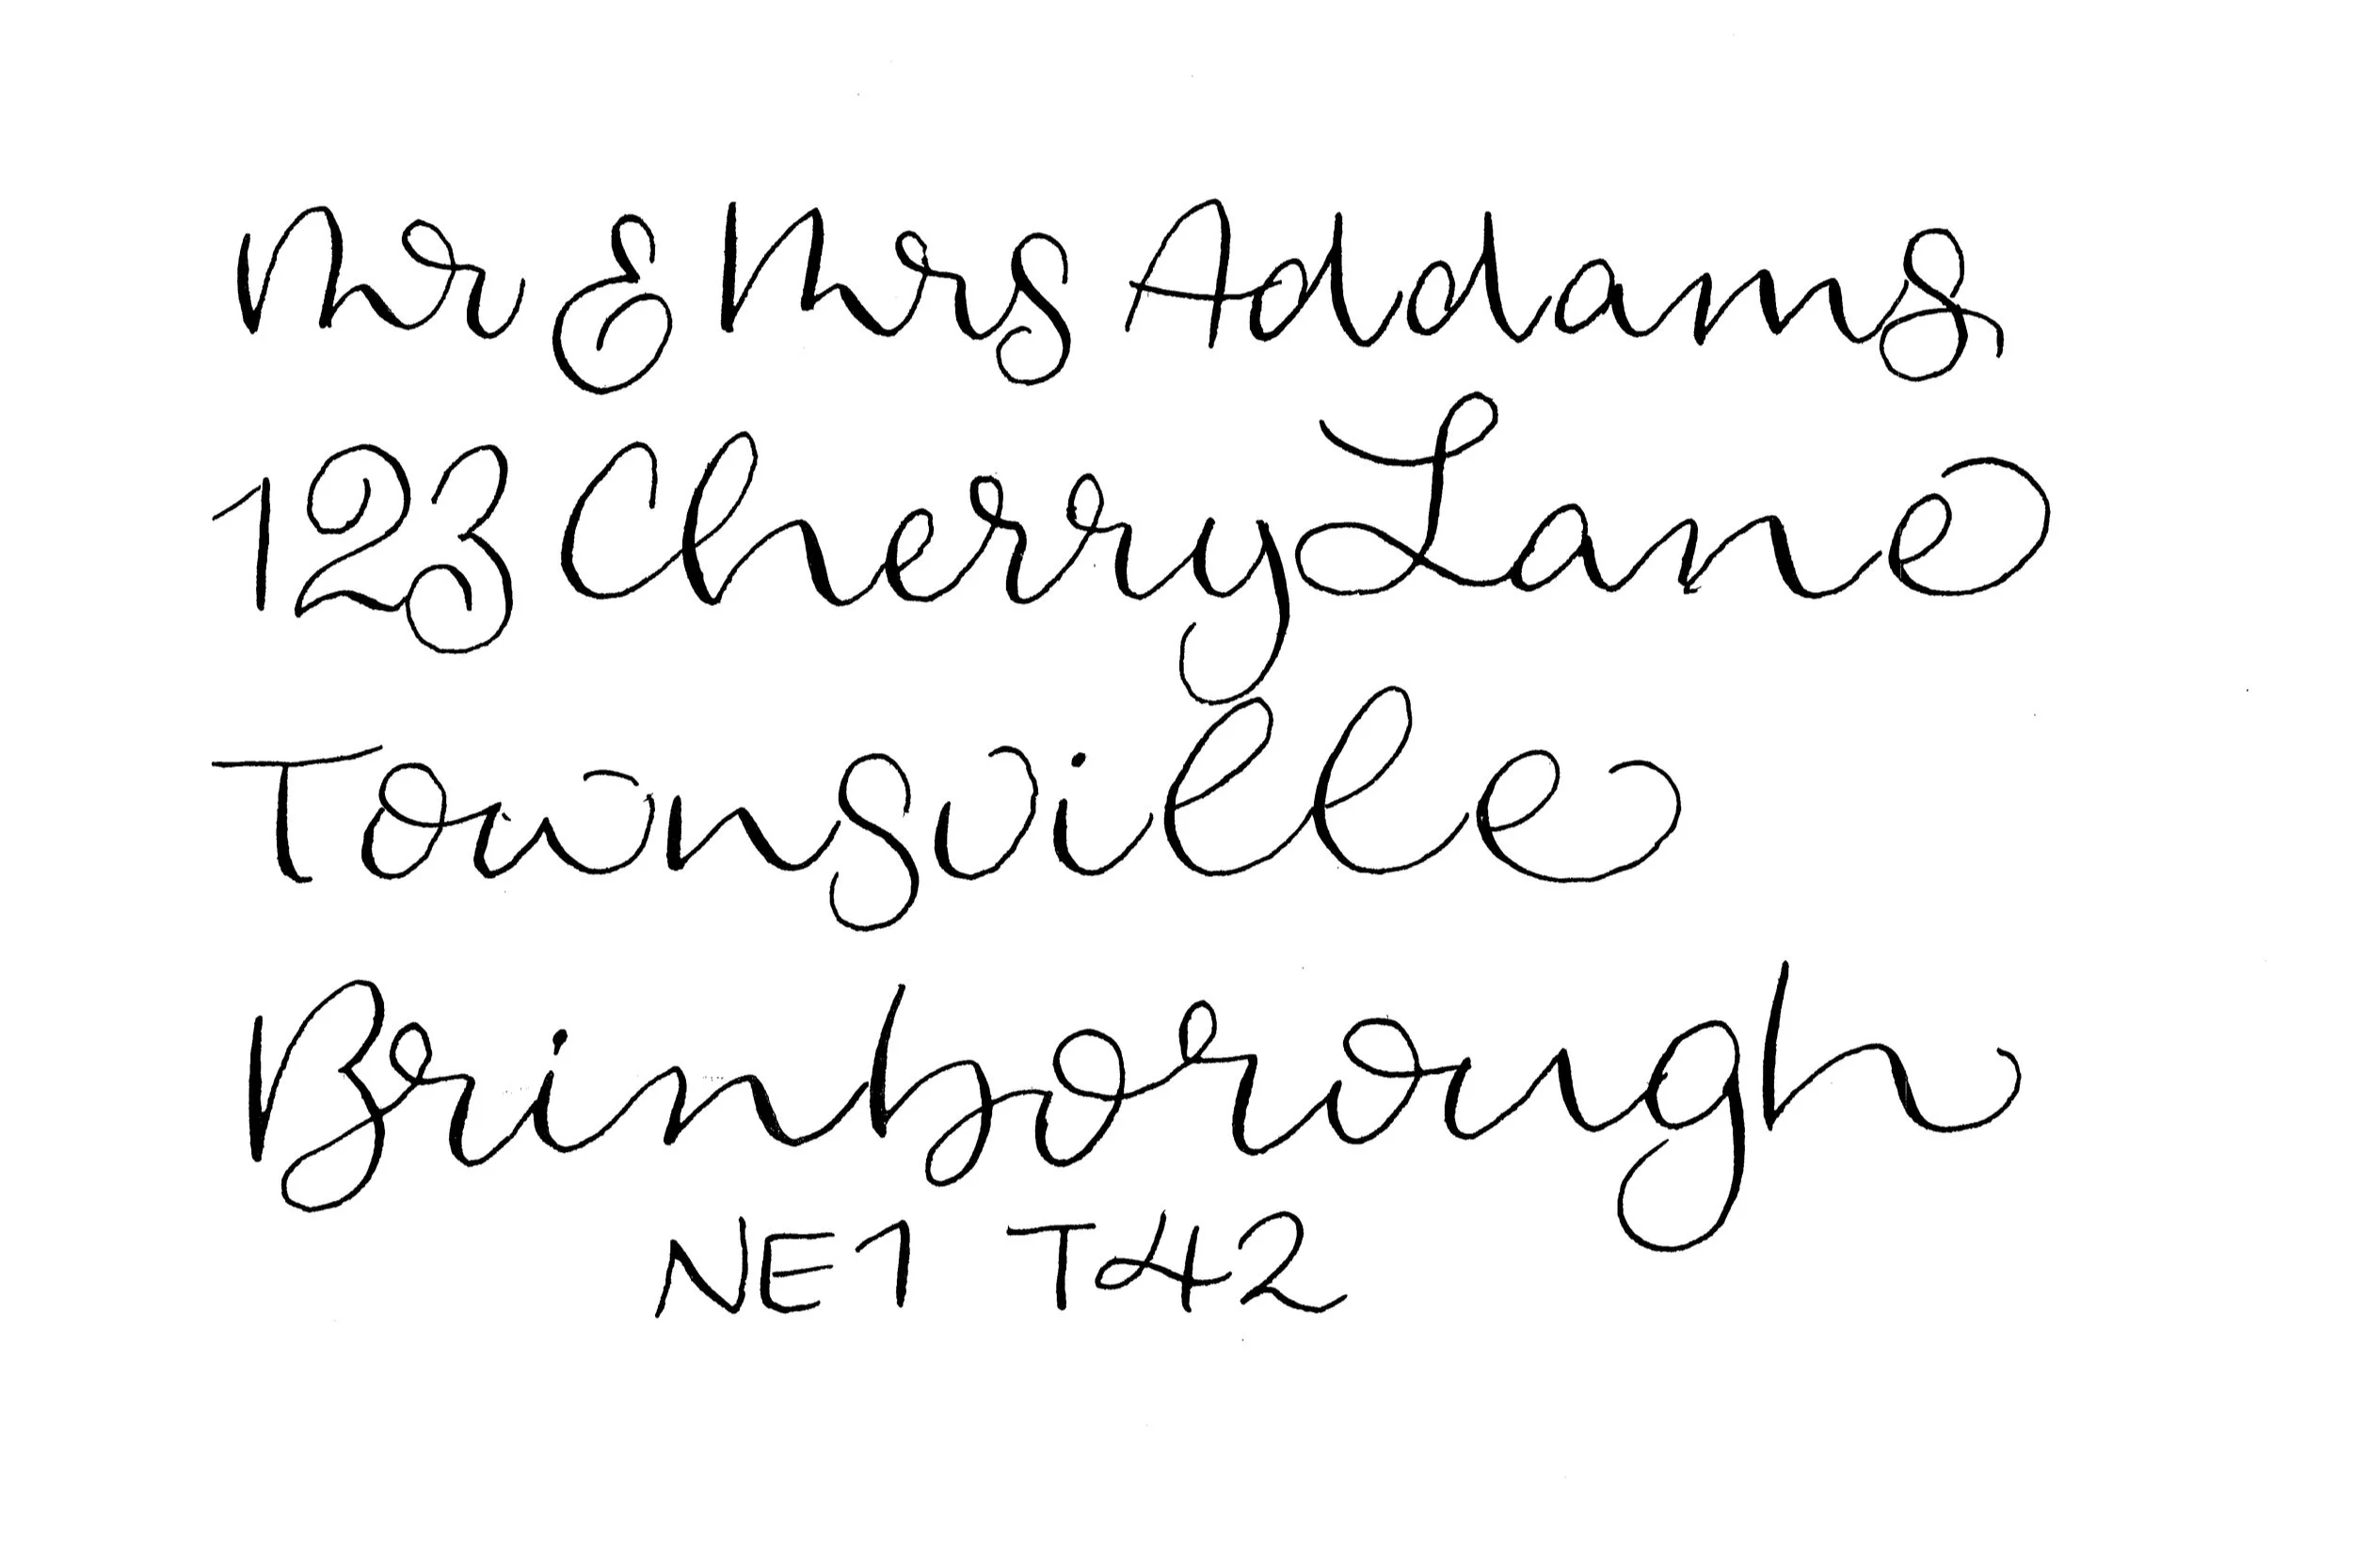 Mr & Mrs Addams
123 Cherry Lane
Townsville
Brinborough
NE1 T42